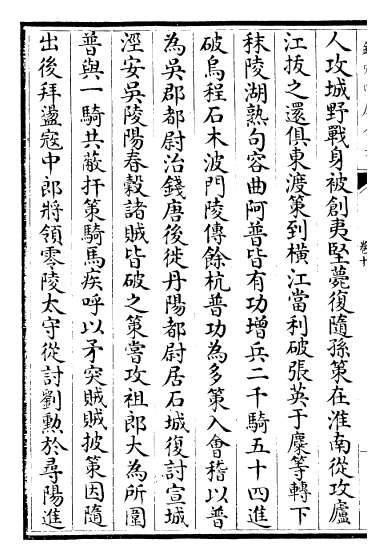 人攻城野戰身被創夷堅薨復隨孫策在淮南從攻廬
江拔之還俱東渡策到橫江當利破張英于麋等轉下
秣陵湖熟句容曲阿普皆有功增兵二千騎五十四進
破烏程石木波門陵傳餘杭普功為多策入會稽以普
為吳郡都尉治錢唐後徙丹陽都尉居石城復討宣城
涇安吳陵陽春穀諸賊皆破之策嘗攻祖郎大為所圍
普與一騎共蔽扞策騎馬疾呼以矛突賊賊披策因隨
出後拜盪寇中郎將領零陵太守從討劉勳於尋陽進